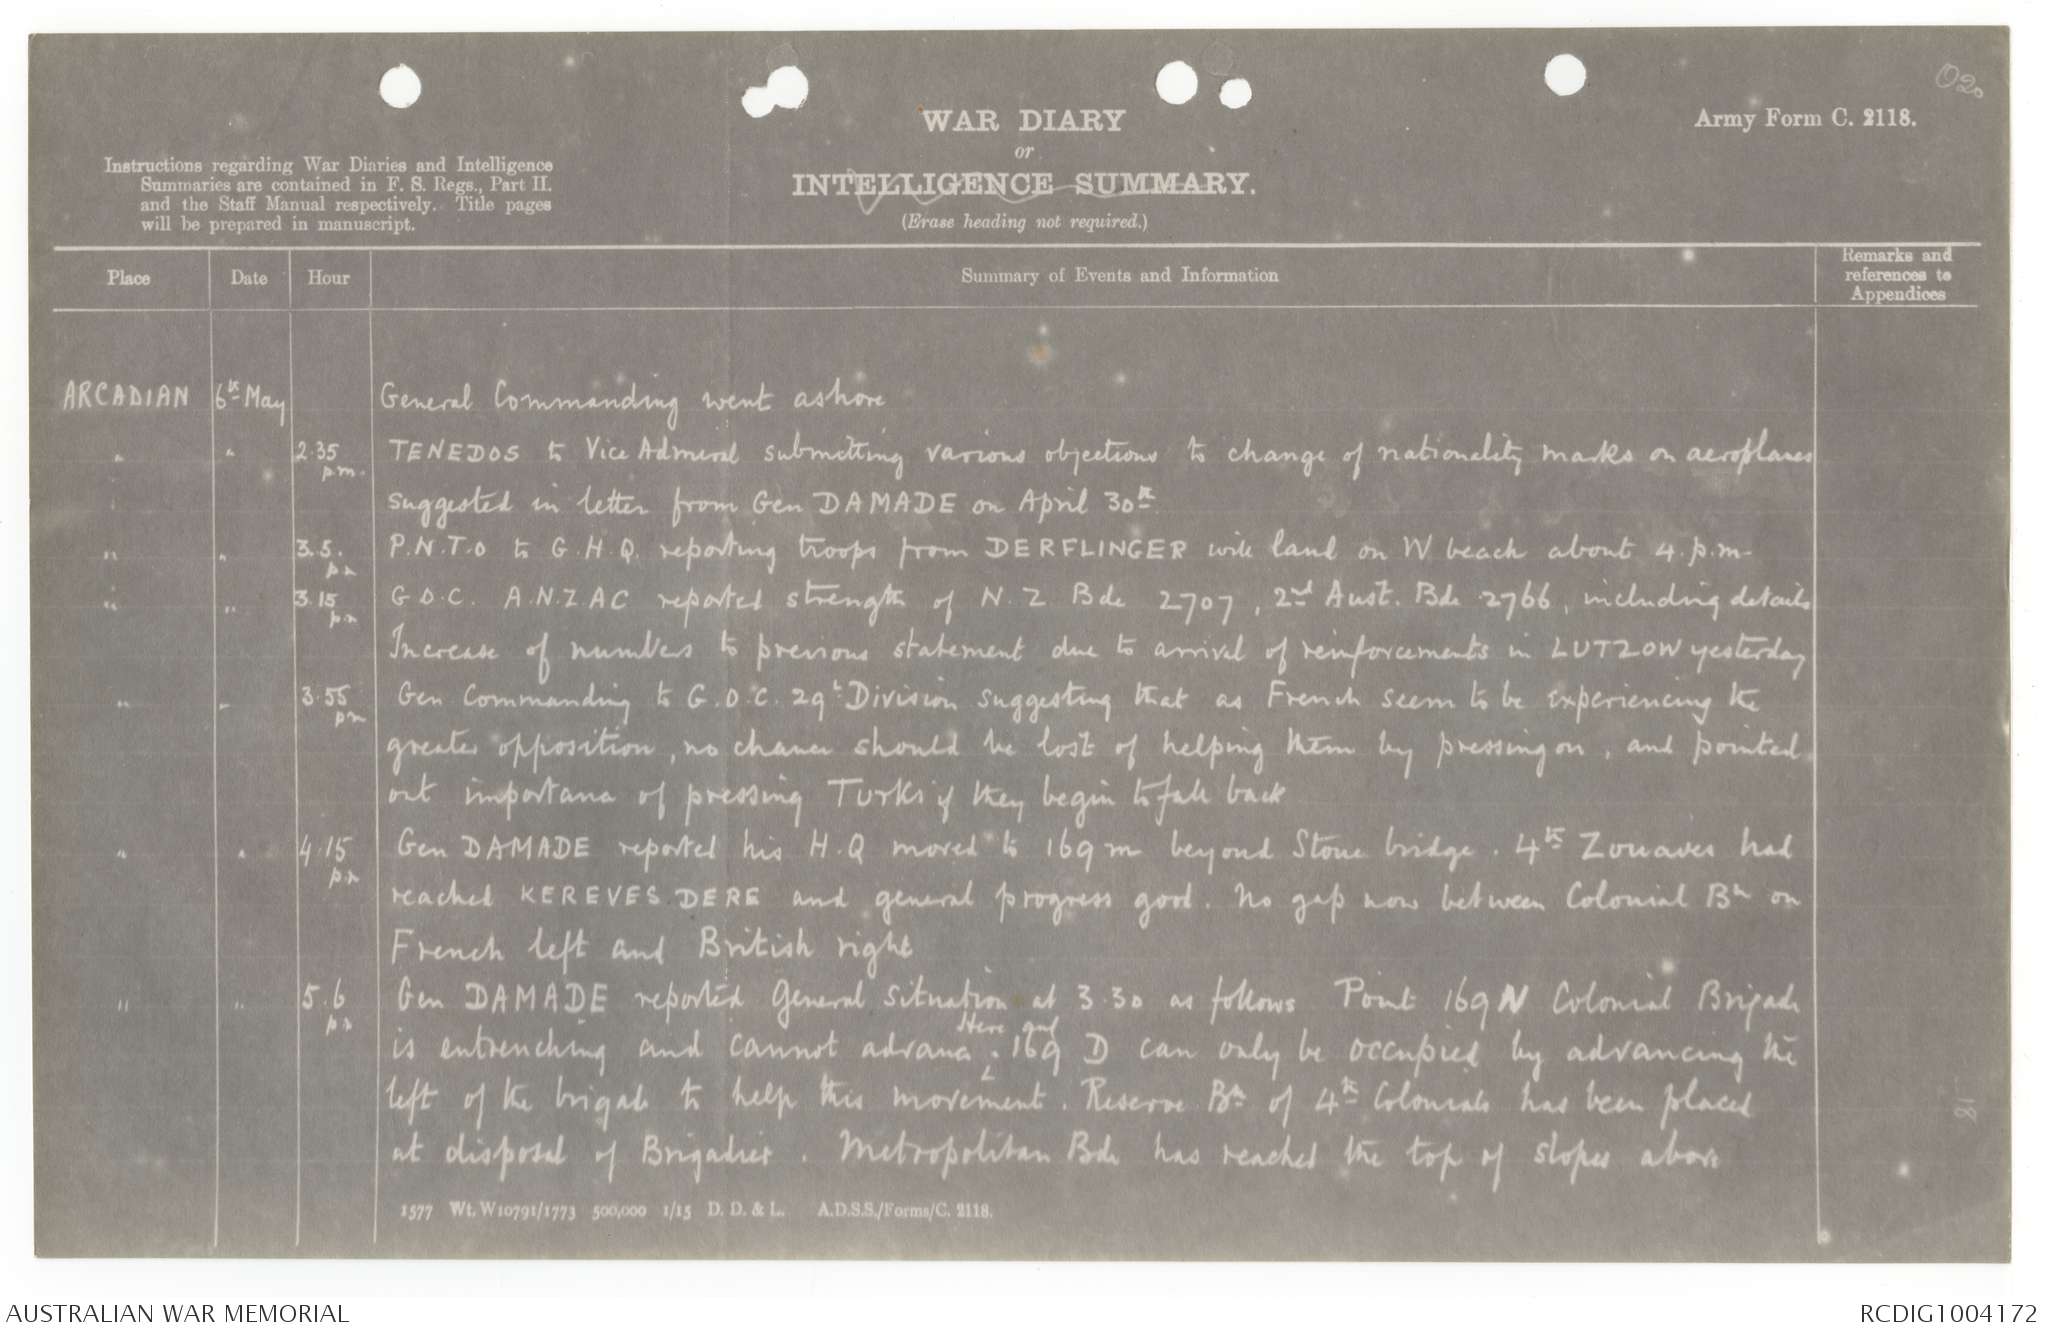 O2o
WAR DIARY
or
INTELLIGENCE SUMMARY.
(Erase heading not required.)
Army Form C. 2118.
Instructions regarding War Diaries and Intelligence
Summaries are contained in F. S. Regs., Part II.
and the Staff Manual respectively. Title pages
will be prepared in manuscript.
Place Date Hour Summary of Events and Information Remarks and references to Appendices
ARCADIAN 6th May General Commanding went ashore
" " 2.35 p.m. TENEDOS to Vice Admiral submitting various objections to change of nationality marks on aeroplanes
suggested in letter from Gen DAMADE on April 30th.
" " 3.5. pm P.N.T.O to G.H.Q. reporting troops from DERFLINGER will land on W beach about 4.p.m.
" " 3.15 pm G.O.C. A.N.Z.AC reported strength of N.Z Bde 2707, 2nd Aust. Bde 2766, including details
Increase of numbers to previous statement due to arrival of reinforcements in LUTZOW yesterday
" " 3.55 pm Gen Commanding to G.O.C. 29th Division suggesting that as French seem to be experiencing the
greater opposition, no chance should be lost of helping them by pressing on, and pointed
out importance of pressing TURKS if they begin to fall back
" " 4.15 pm Gen DAMADE reported his H.Q moved to 169 m beyond Stone bridge. 4th Zouaves had
reached KEREVES DERE and general progress good. No gap now between Colonial Bn on
French left and British right
" " 5.6 pm Gen DAMADE reported general situation at 3.30 as follows Point 169 N Colonial Brigade
is entrenching and cannot advance. Here and 169 D can only be occupied by advancing the
left of the brigade to help this movement. Reserve Bn of 4th Colonials has been placed
at disposal of Brigadier. Metropolitan Bde has reached the top of slopes above
1577 Wt. W10791/1773 500,000 1/15 D. D. & L. A.D.S.S./Forms/C. 2118.
81
AUSTRALIAN WAR MEMORIAL
RCDIG1004172